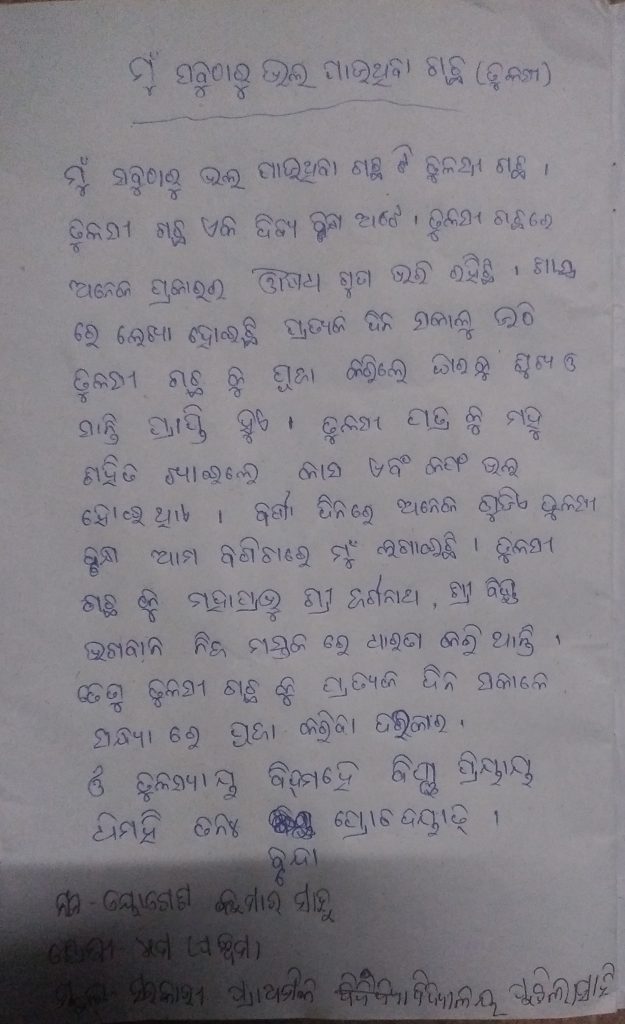 ମୁଁ ସବୁଠାରୁ ଭଲ ପାଉଥିବା ଗଛ (ତୁଳସୀ)
ମୁଁ ସବୁଠାରୁ ଭଲ ପାଉଥିବା ଗଛ ଟି ତୁଳସୀ ଗଛ ।
ତୁଳସୀ ଗଛ ଏକ ଦିବ୍ୟ ବୃକ୍ଷ ଅଟେ । ତୁଳସୀ ଗଛରେ
ଅନେକ ପ୍ରକାରର ଔଷଧୀ ଗୁଣ ଭରି ରହିଛି । ଶାସ୍ତ୍ର
ରେ ଲେଖା ହୋଇଛି ପ୍ରତ୍ୟକ ଦିନ ସକାଳୁ ଉଠି
ତୁଳସୀ ଗଛ କୁ ପୂଜା କରିଲେ ଘରକୁ ସୁଖ ଓ
ଶାନ୍ତି ପ୍ରାପ୍ତି ହୁଏ । ତୁଳସୀ ପତ୍ର କୁ ମହୁ
ସହିତ ଖାଇଲେ କାସ ଏବଂ କଫ ଭଲ
ହୋଇ ଥାଏ । ବର୍ଷା ଦିନରେ ଅନେକ ଗୁଡିଏ ତୁଳସୀ
ବୃକ୍ଷ ଆମ ବଗିଚାରେ ମୁଁ ଲଗାଇଛି । ତୁଳସୀ
ଗଛ କୁ ମହାପ୍ରଭୁ ଶ୍ରୀ ଜଗନ୍ନାଥ, ଶ୍ରୀ ବିଷ୍ଣୁ
ଭଗବାନ ନିଜ ମସ୍ତକ ରେ ଧାରଣ କରି ଥାନ୍ତି ।
ତେଣୁ ତୁଳସୀ ଗଛ କୁ ପ୍ରତ୍ୟକ ଦିନ ସକାଳେ
ସନ୍ଧ୍ୟା ରେ ପୂଜା କରିବା ଦରକାର ।
ଓଁ ତୁଳସ୍ୟାୟ ବିଦ୍ମହେ ବିଷ୍ଣୁ ପ୍ରିୟାୟ
ଧିମହି ତନ୍ନଃ ପ୍ରୋଚଦୟାତ୍ ।
ବୃନ୍ଦା
ନାମ - ଯୋଗେଶ କୁମାର ସାହୁ
ଶ୍ରେଣୀ ୫ମ (ପଞ୍ଚମ)
ସ୍କୁଲ ସରକାରୀ ପ୍ରାଥମିକ ବିଦ୍ୟାଳୟ